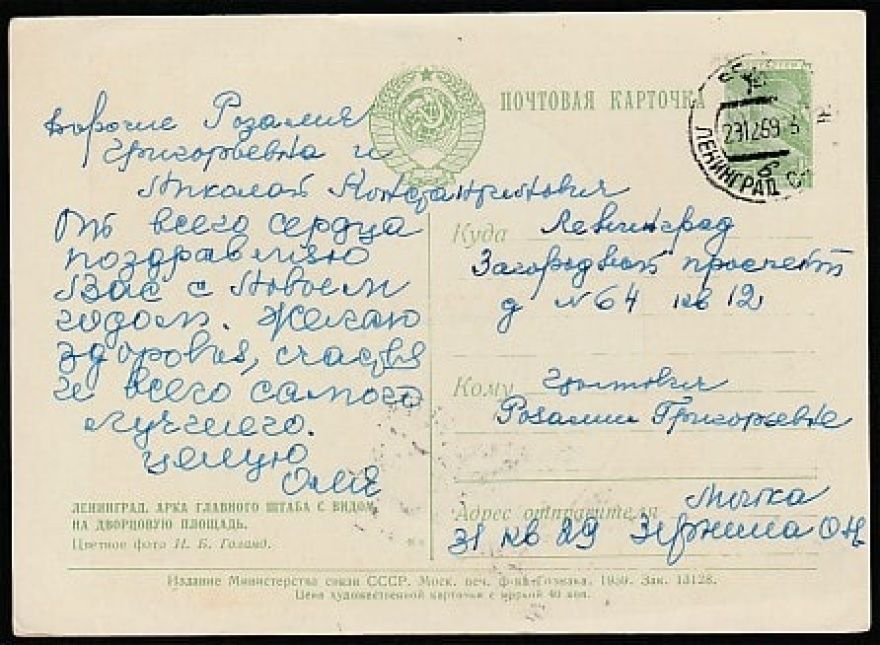 ПОЧТОВАЯ КАРТОЧКА
231259
ЛЕНИНГРАД
Дорогие Розалия
Григорьевна и
Николай Константинович
От всего сердца
поздравляю
Вас с Новым
годом. Желаю
здоровья, счастья
и всего самого
лучшего.
Целую
Оля
ЛЕНИНГРАД. АРКА ГЛАВНОГО ШТАБА С ВИДОМ
НА ДВОРЦОВУЮ ПЛОЩАДЬ.
Цветное фото И. Б. Голанд.
Куда Ленинград
Загородный проспект
д N 64 кв 12
Кому
Розалии Григорьевне
Адрес отправителя
31 кв 29
Издание Министерства связи СССР. Моск. печ. ф-ка Гознака. 1959. Зак. 13128.
Цена художественной карточки с маркой 40 коп.